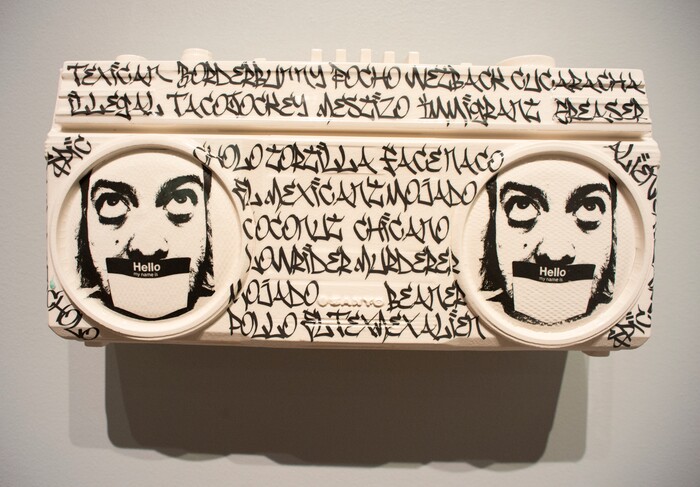 TEXICAN BORDERBUNNY POCHO WETBACK CUCARACHA
ILLEGAL TACOJOCKEY MESTIZO IMMIGRANT GREASER
SPIC
CHOLO ZORZILLA FACENACO
ALIEN
EL MEXICAN MOJADO
COCONUT CHICANO
LOWRIDER MURDERER
Hello
my name is
Hello
my name is
MOJADO BEANER
POLLO ELTEXMEX ALIEN
CHOLO
SPIC